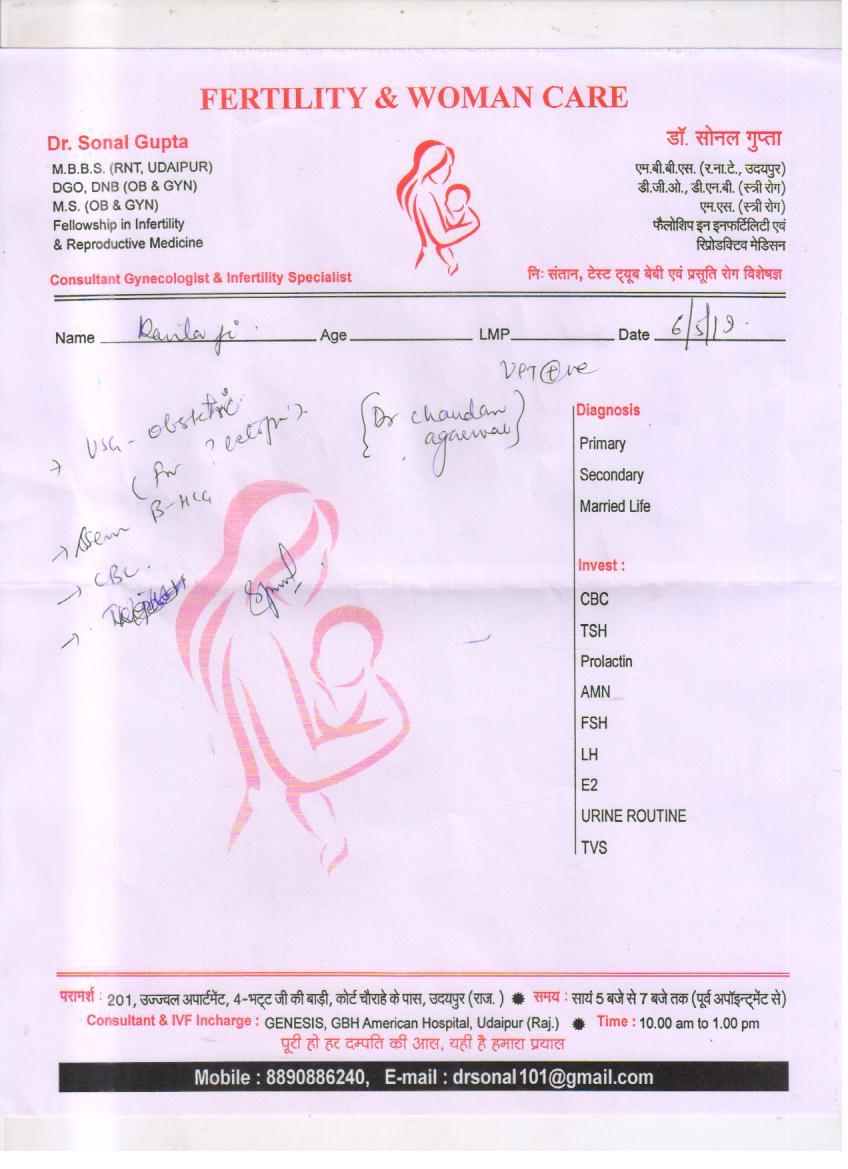 FERTILITY & WOMAN CARE
Dr. Sonal Gupta
M.B.B.S. (RNT, UDAIPUR)
DGO, DNB (OB & GYN)
M.S. (OB & GYN)
Fellowship in Infertility
& Reproductive Medicine
Consultant Gynecologist & Infertility Specialist
डॉ. सोनल गुप्ता
एम.बी.बी.एस. (र.ना.टे., उदयपुर)
डी.जी.ओ., डी.एन.बी. (स्त्री रोग)
एम.एस. (स्त्री रोग)
फैलोशिप इन इनफर्टिलिटी एवं
रिप्रोडक्टिव मेडिसन
निः संतान, टेस्ट ट्यूब बेबी एवं प्रसूति रोग विशेषज्ञ
Name ji Age LMP Date 6/5/19
UPT ⊕ve
→ USG - Obstetric
(for ? ectopic)
{Dr Chandan
agarwal}
→ Serum B-HCG
→ CBC.
→
Diagnosis
Primary
Secondary
Married Life
Invest :
CBC
TSH
Prolactin
AMN
FSH
LH
E2
URINE ROUTINE
TVS
परामर्श : 201, उज्ज्वल अपार्टमेंट, 4-भट्ट जी की बाड़ी, कोर्ट चौराहे के पास, उदयपुर (राज. ) ✹ समय : सायं 5 बजे से 7 बजे तक (पूर्व अपॉइन्ट्मेंट से)
Consultant & IVF Incharge : GENESIS, GBH American Hospital, Udaipur (Raj.) ✹ Time : 10.00 am to 1.00 pm
पूरी हो हर दम्पति की आस, यही है हमारा प्रयास
Mobile : 8890886240, E-mail : drsonal101@gmail.com